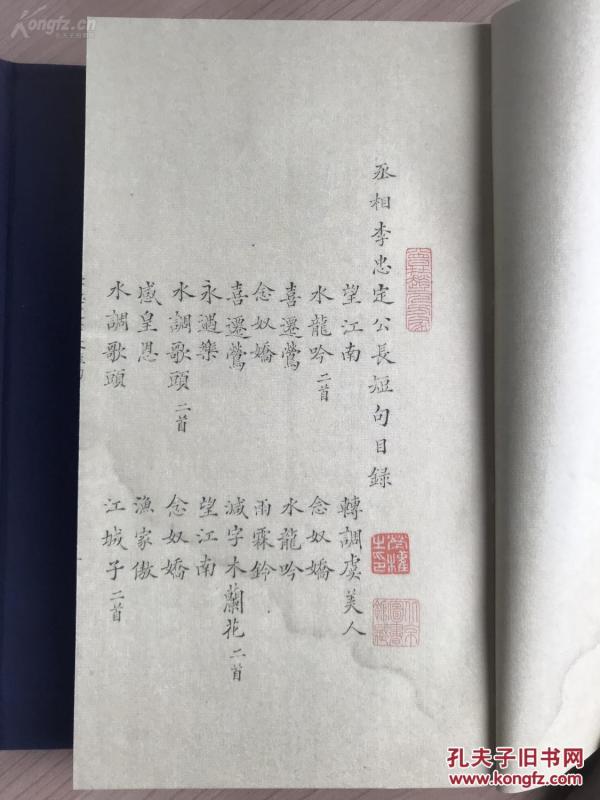 丞相李忠定公長短句目録
望江南 轉調虞美人
水龍吟二首 念奴嬌
喜遷鶯 水龍吟
念奴嬌 雨霖鈴
喜遷鶯 減字木蘭花二首
永遇樂 望江南
水調歌頭二首 念奴嬌
感皇恩 漁家傲
水調歌頭 江城子二首
Kongfz.cn
孔夫子旧书网
www.kongfz.com